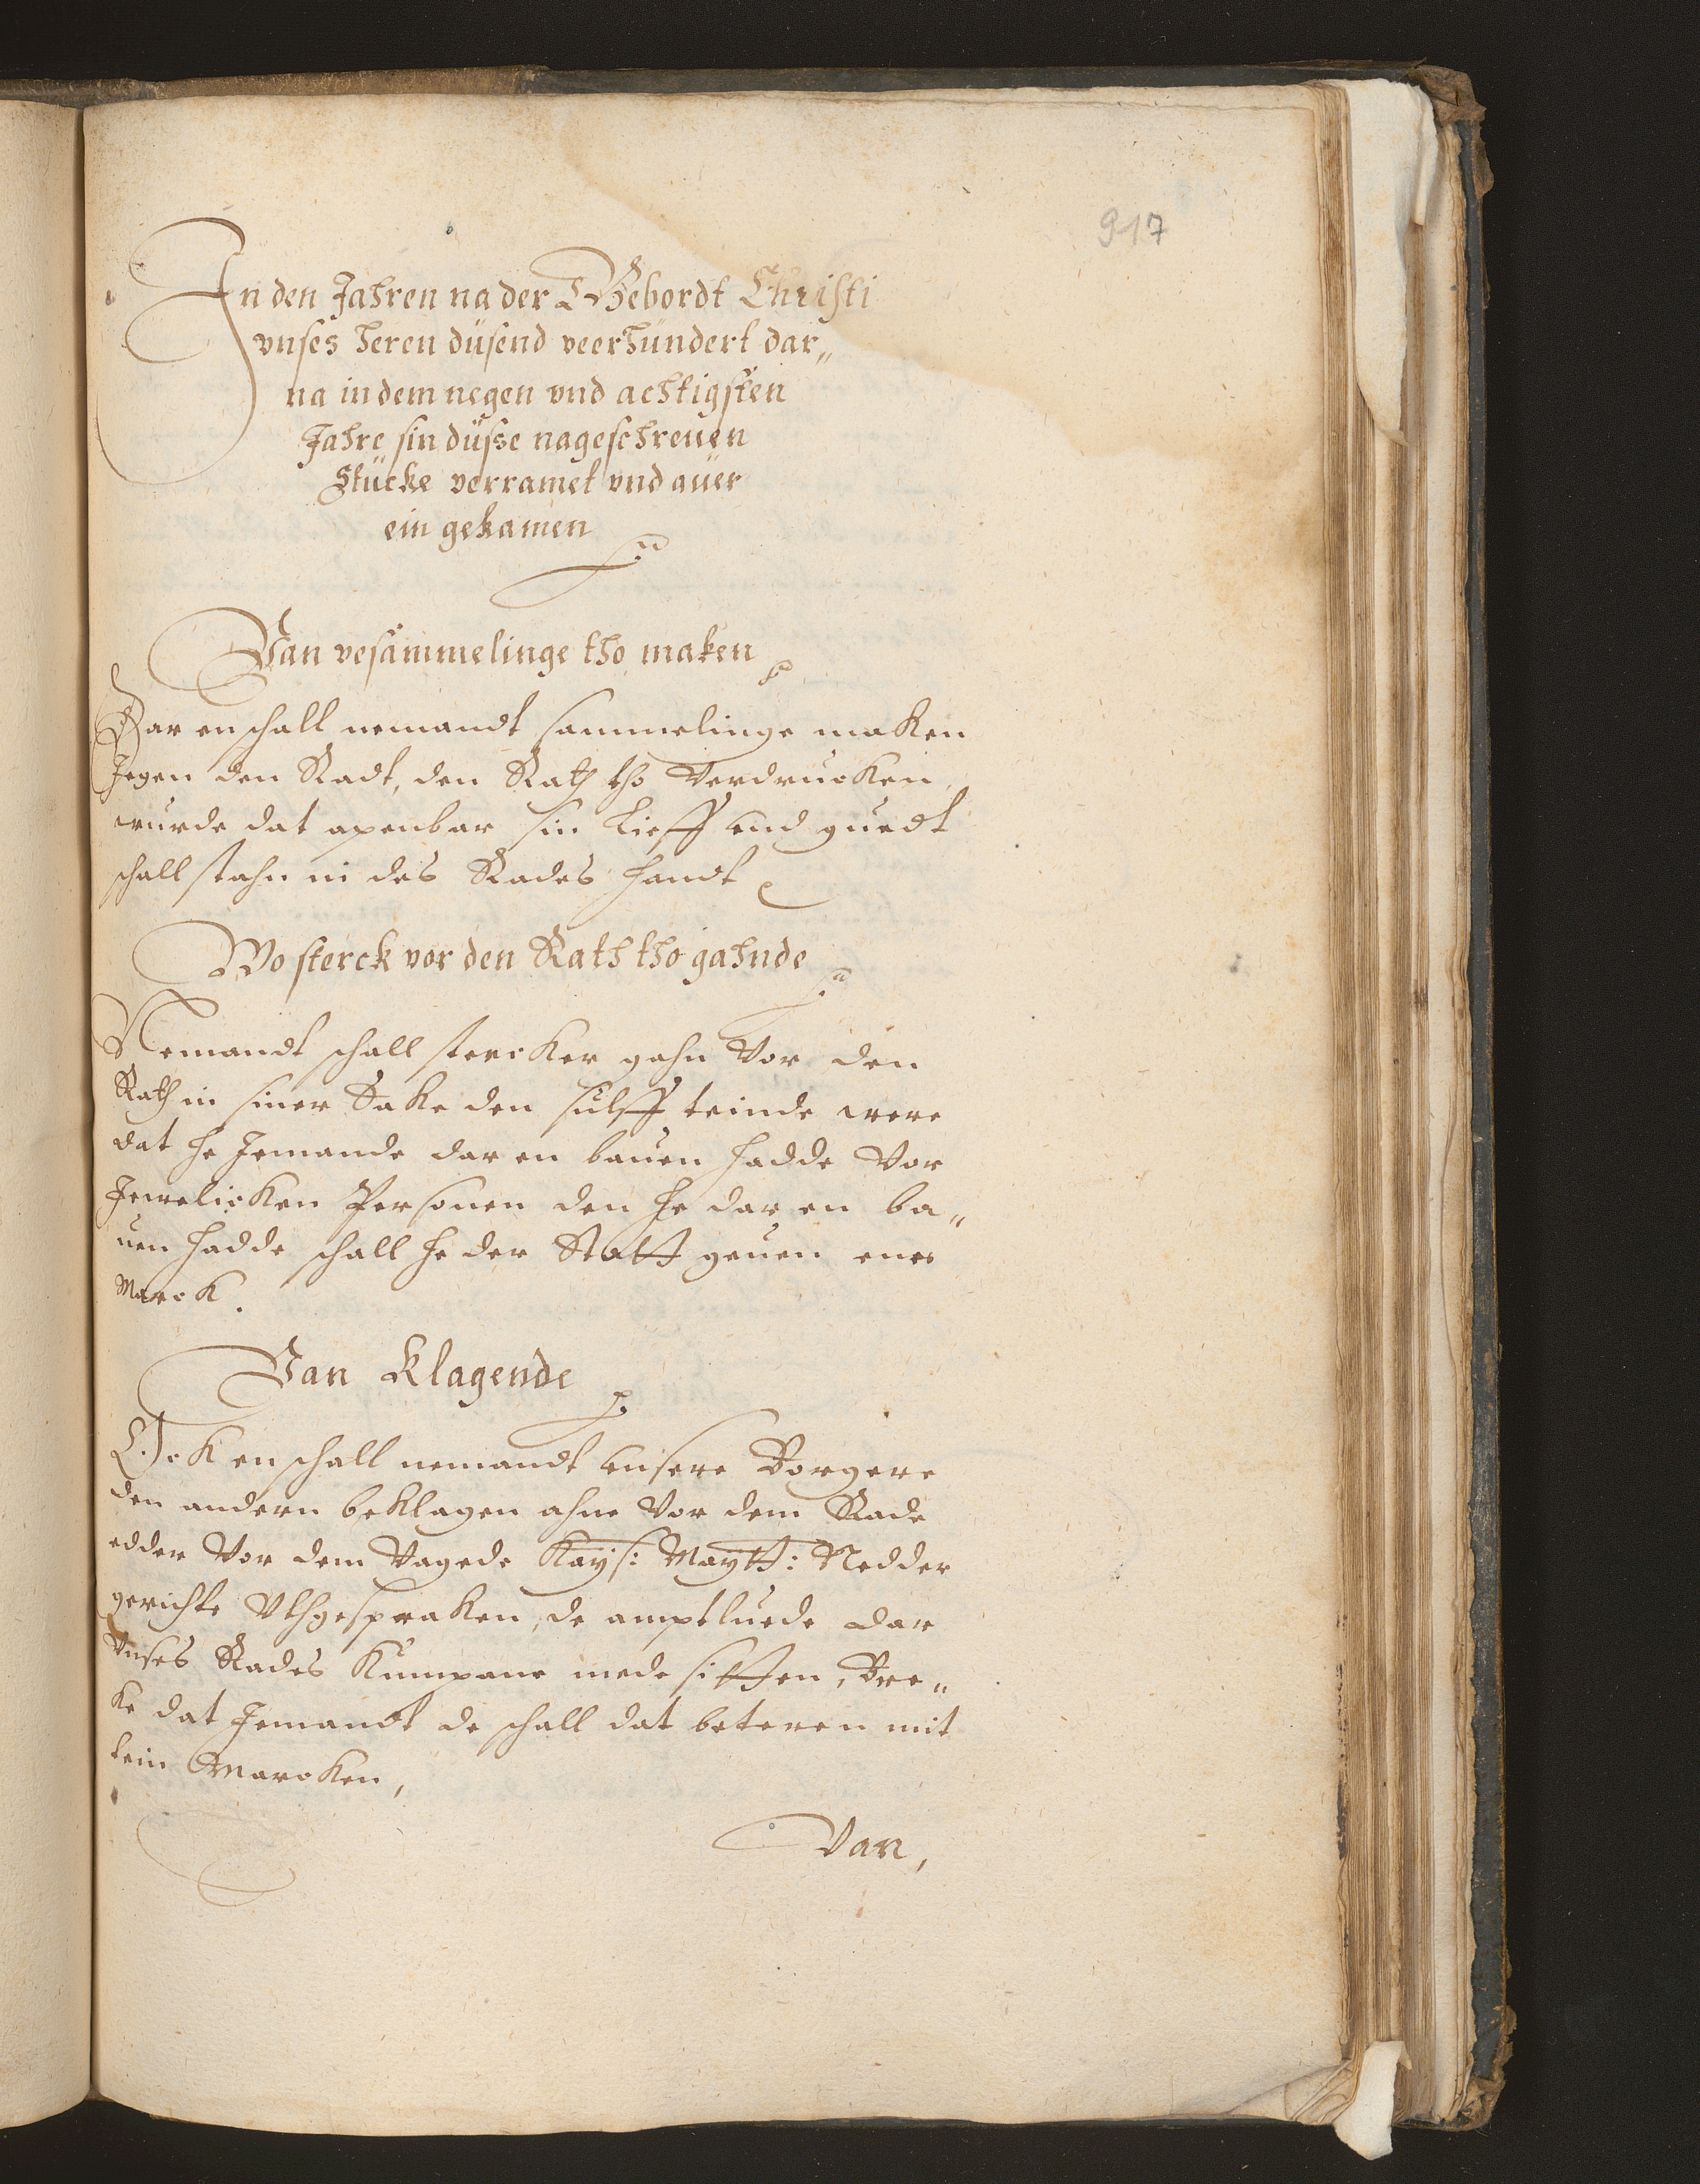 917
In den Jahren na der Gebordt Christi
vnses Heren düsend veerhundert dar„
na in dem negen vnd achtigsten
Jahre sin düsse nageschreuen
Stücke verramet vnd auer
ein gekamen
Van vesammelinge tho maken
Dar en schall nemandt sammelinge maken
Jegen den Radt, den Rath tho verdrucken
wurde dat apenbar sin Lieff vnd guedt
schall stahn in des Rades handt
Wo sterck vor den Rath tho gahnde
Nemandt schall stercker gahn vor den
Rath in siner Sake den sülff teinde were
dat he Jemande dar en bauen hadde vor
Jewelicken Personen den he dar en ba„
uen hadde schall he der Statt geuen ene
Marck.
Van Klagende
Ock en schall nemandt vnsere Borgere
den andern beklagen ahne vor dem Rade
edder vor dem Vagede Kayß: Maytt: Nedder
gerichte Vthgespraken, de amptluede dar
vnses Rades Kumpane mede sitten, Bre„
ke dat Jemandt de schall dat beteren mit
tein Marcken,
Van,